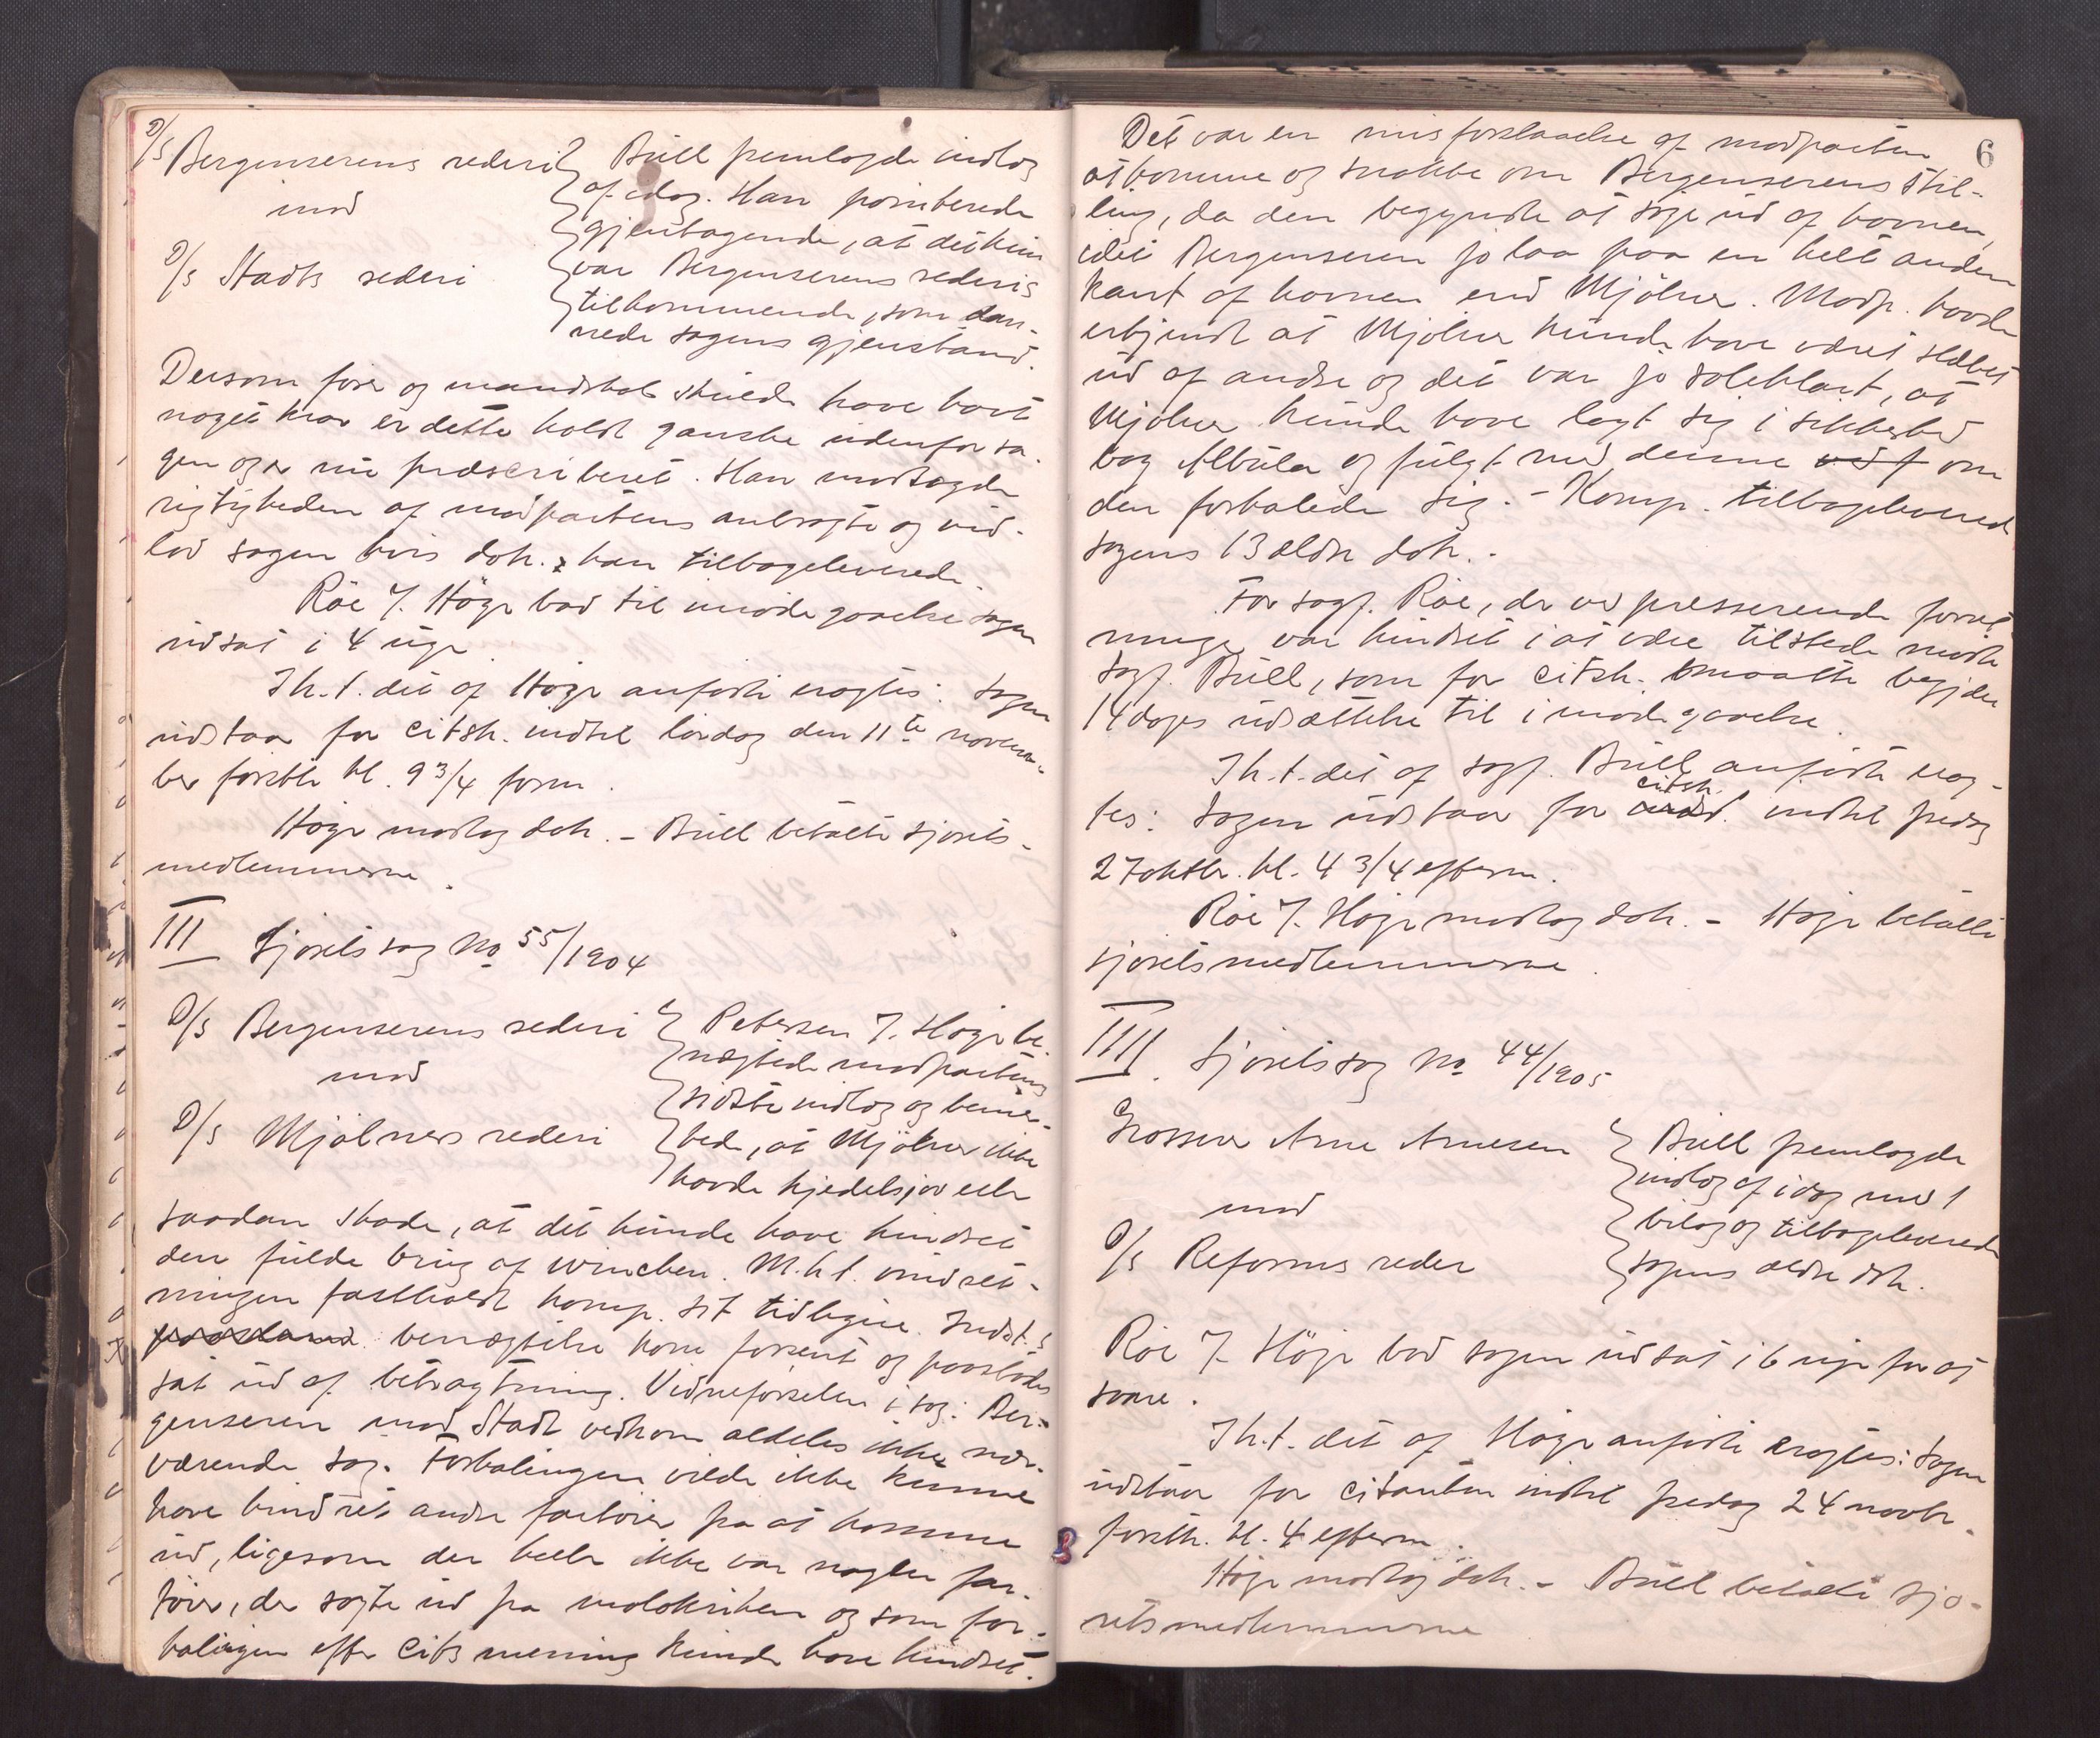 D/S Bergenserens rederi
mod
D/S Stadts rederi
Bull fremlagde indlæg
af idag. Han pointerede
gjentagende, at det kun
var Bergenserens rederis
tilkommende, som dan-
nede sagens gjenstand.
Dersom fører og mandskab skulde have havt
noget krav er dette holdt ganske udenfor sa-
gen og er nu præscriberet. Han modsagde
rigtigheden af modpartens anbragte og ind-
lod sagen hvis dok. han tilbageleverede.
Röe f. Höge bad til imødegaaelse sagen
udsat i 4 uger
I h. t. det af Høge anførte eragtes: Sagen
udstaar for citsk. indtil lørdag den 11te novem-
ber førstk. kl. 9 3/4 form.
Høge modtog dok. - Bull betalte sjørets-
medlemmerne.
III Sjøretssag No 55/1904
D/S Bergenserens rederi
mod
D/S Mjølners rederi
Petersen f. Høge be-
nægtede modpartens
sidste indlæg og bemær-
ked, at Mjølner ikke
havde kjedelsjov eller
saadan skade, at det kunde have hindret
den fulde brug af winchen. M.h.t. vindret-
ningen fastholdt komp. sit tidligere. Indst.s
benægtelse kom forsent og paastodes
sat ud af betragtning. Vidneførselen i sag: Ber-
genseren mod Stadt vedkom aldeles ikke nær-
værende sag. Forhalingen vilde ikke kunne
have hindret andre fartøier fra at komme
ud, ligesom der heller ikke var nogle far-
tøier, der søgte ud fra molokriken og som for-
halingen efter cits mening kunde have hindret.
6
Det var en misforstaaelse af modparten
at komme og snakke om Bergenserens stil-
ling, da den begyndte at søge ud af havnen,
idet Bergenseren jo laa paa en helt anden
kant af havnen end Mjølner. Modp. havde
erkjendt at Mjølner kunde have været slæbet
ud af andre og det var jo soleklart, at
Mjølner kunde have lagt sig i sikkerhed
bag Albula og fulgt med denne om
den forhalede sig. - Komp. tilbageleverede
sagens 13 ældre dok.
For sagf. Röe, der ved presserende forret-
ninger var hindret i at være tilstede mødte
sagf. Bull, som for citsk. maatte begjære
14 dages udsættelse til imødegaaelse.
I h. t. det af sagf. Bull anførte erag-
tes: Sagen udstaar for citsk. indtil fredag
27 oktbr. kl. 4 3/4 efterm.
Röe f. Høge modtog dok. - Høge betalte
sjøretsmedlemmerne.
IIII. Sjøretssag No 44/1905
Grosserer Arne Arnesen
mod
D/S Reforms reder
Bull fremlagde
indlæg af idag med 1
bilag og tilbageleverede
sagens ældre dok.
Röe f. Höge bad sagen udsat i 6 uger for at
svare.
I h. t. det af Høge anførte eragtes: Sagen
udstaar for citanten indtil fredag 24 novbr.
førstk. kl. 4 efterm.
Høge modtog dok. - Bull betalte sjø-
retsmedlemmerne